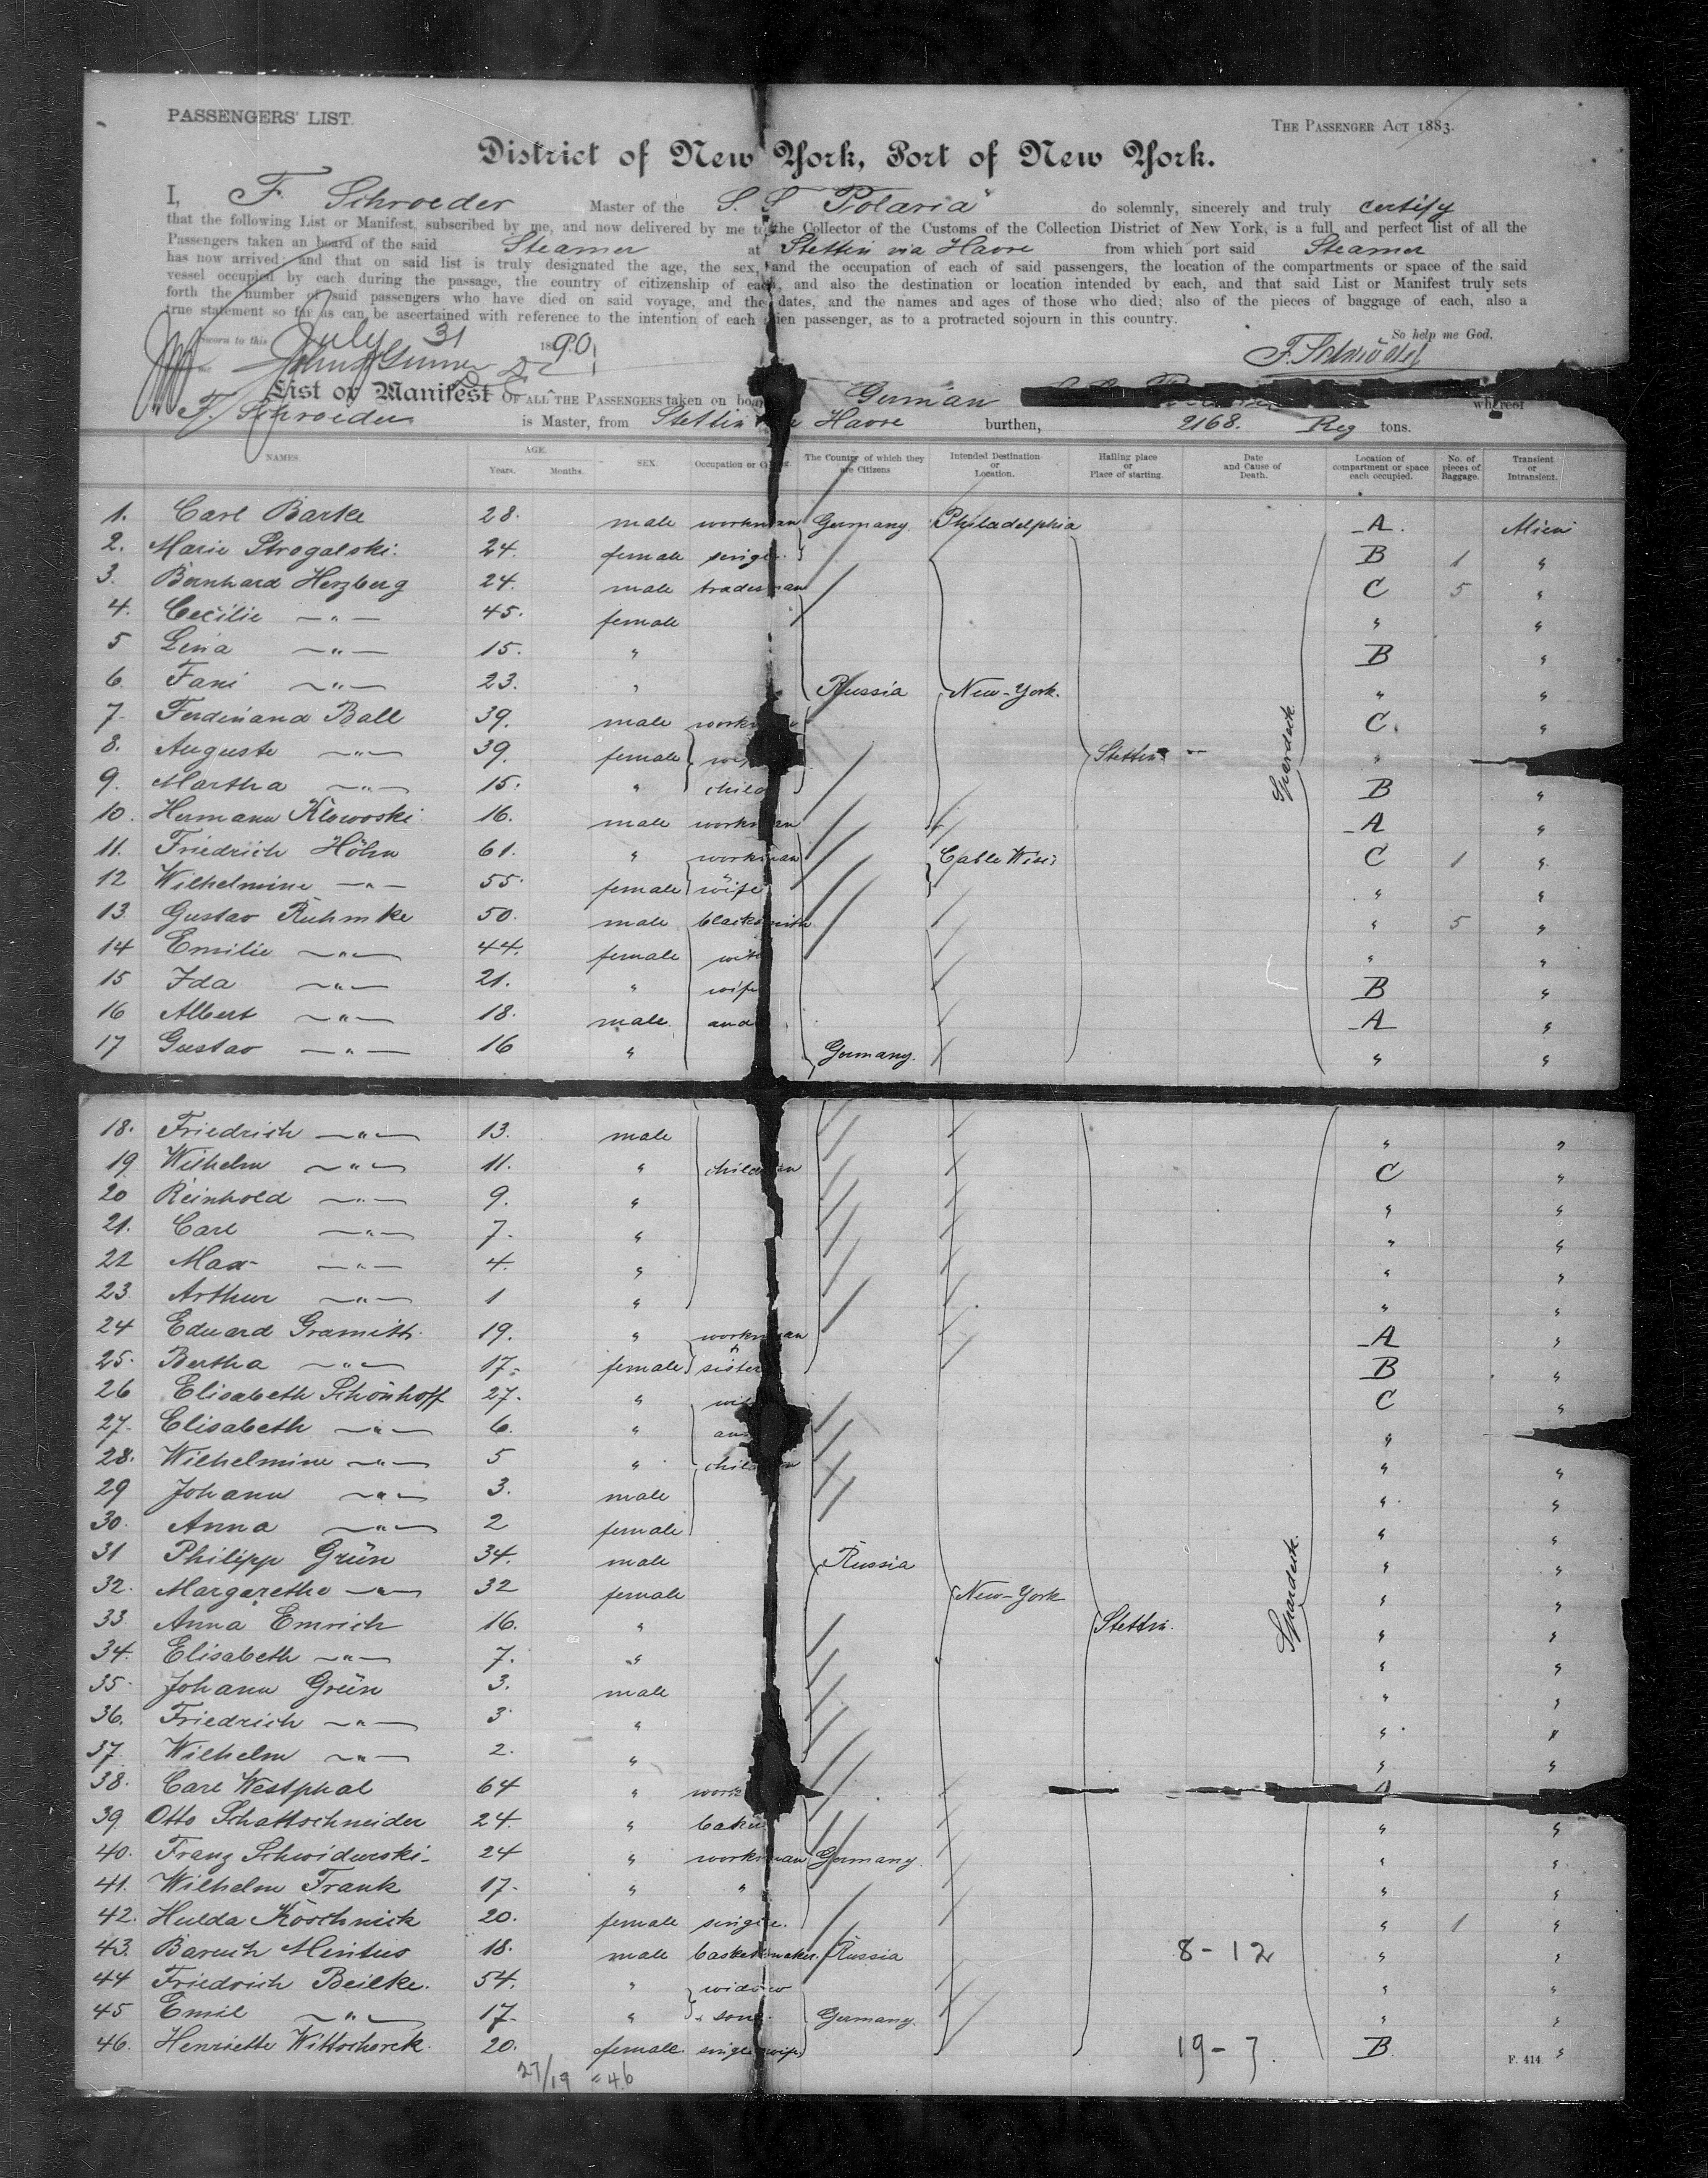 PASSENGERS' LIST.
THE PASSENGER ACT 1883.
District of New York, Port of New York.
I, F. Schroeder Master of the S. S. "Polaria" do solemnly, sincerely and truly certify
that the following List or Manifest, subscribed by me, and now delivered by me to the Collector of the Customs of the Collection District of New York, is a full and perfect list of all the
Passengers taken on board of the said Steamer at Stettin via Havre from which port said Steamer
has now arrived; and that on said list is truly designated the age, the sex, and the occupation of each of said passengers, the location of the compartments or space of the said
vessel occupied by each during the passage, the country of citizenship of each, and also the destination or location intended by each, and that said List or Manifest truly sets
forth the number of said passengers who have died on said voyage, and the dates, and the names and ages of those who died; also of the pieces of baggage of each, also a
true statement so far as can be ascertained with reference to the intention of each alien passenger, as to a protracted sojourn in this country.
So help me God.
Sworn to this July 31 1890
F. Schröder
List or Manifest OF ALL THE PASSENGERS taken on board German whereof
F. Schroeder is Master, from Stettin Havre burthen, 2168. Reg tons.
NAMES. AGE. Years. Months. SEX. Occupation or The Country of which they are Citizens Intended Destination or Location. Hailing place or Place of starting. Date and Cause of Death. Location of compartment or space each occupied. No. of pieces of Baggage. Transient or Intransient.
1. Carl Barke 28. male workman Germany. Philadelphia A. Alien
2. Marie Strogalski. 24. female single. B 1 "
3. Bernhard Herzberg 24. male tradesman C 5 "
4. Cecilie —"— 45. female " "
5 Lina —"— 15. " B "
6. Fani —"— 23. " Russia New-York. " "
7. Ferdinand Ball 39. male workman C. "
8. Auguste —"— 39. female wife Stettin "
9. Martha —"— 15. " child B "
10. Hermann Klowoski 16. male workman A "
11. Friedrich Höhn 61. " workman Cable Wis: C 1 "
12 Wilhelmine —"— 55. female wife " "
13. Gustav Ruhmke 50. male blacksmith " 5 "
14 Emilie —"— 44. female wife " "
15 Ida —"— 21. " wife B "
16 Albert —"— 18. male and A "
17 Gustav —"— 16 " Germany. " "
Sperdeck
18. Friedrich —"— 13. male " "
19 Wilhelm —"— 11. " children C "
20 Reinhold —"— 9. " " "
21. Carl —"— 7. " " "
22 Max —"— 4. " " "
23. Arthur —"— 1 " " "
24 Eduard Gramith. 19. " workman A "
25. Bertha —"— 17. female sister B "
26 Elisabeth Schönhoff 27. " wife C "
27. Elisabeth —"— 6. " and "
28. Wilhelmine —"— 5 " children " "
29 Johann —"— 3. male " "
30. Anna —"— 2 female " "
31 Philipp Grün 34. male Russia " "
32. Margarethe —"— 32 female New-York " "
33 Anna Emrich 16. " Stettin. " "
34. Elisabeth —"— 7. " " "
35. Johann Grün 3. male " "
36. Friedrich —"— 3 " " "
37. Wilhelm —"— 2. " " "
38. Carl Westphal 64 " work A
39 Otto Schattschneider 24. " baker " "
40. Franz Schwiderski 24 " workman Germany. " "
41. Wilhelm Frank 17. " " " "
42. Hulda Köschnick 20. female single. " 1 "
43. Baruch Mintus 18. male basketmaker. Russia 8-12 " "
44 Friedrich Beilke. 54. " widow " "
45 Emil —"— 17. " & son. Germany. " "
46. Henriette Wittschorek. 20. female. single (wife) 19-7. B. "
Sperdeck
27/19 = 46
F. 414